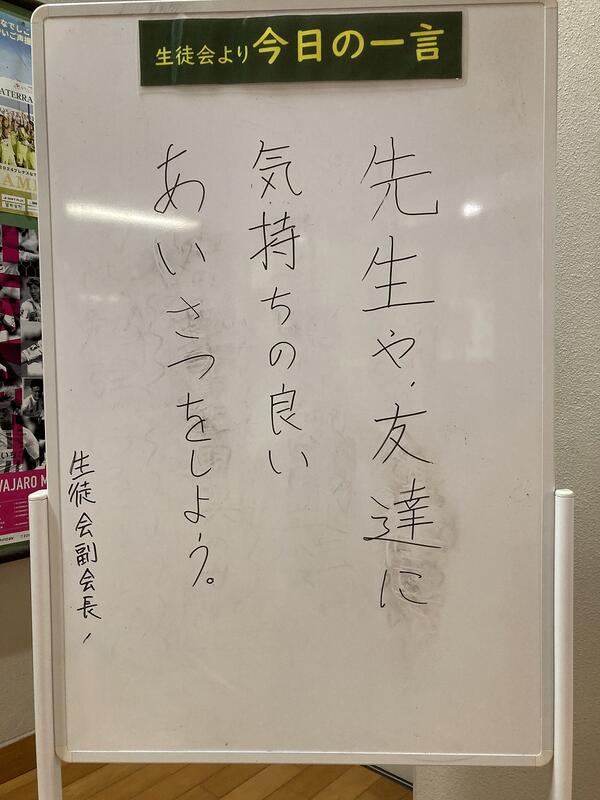 生徒会より今日の一言
先生や友達に
気持ちの良い
あいさつをしよう。
生徒会副会長
ATERRA